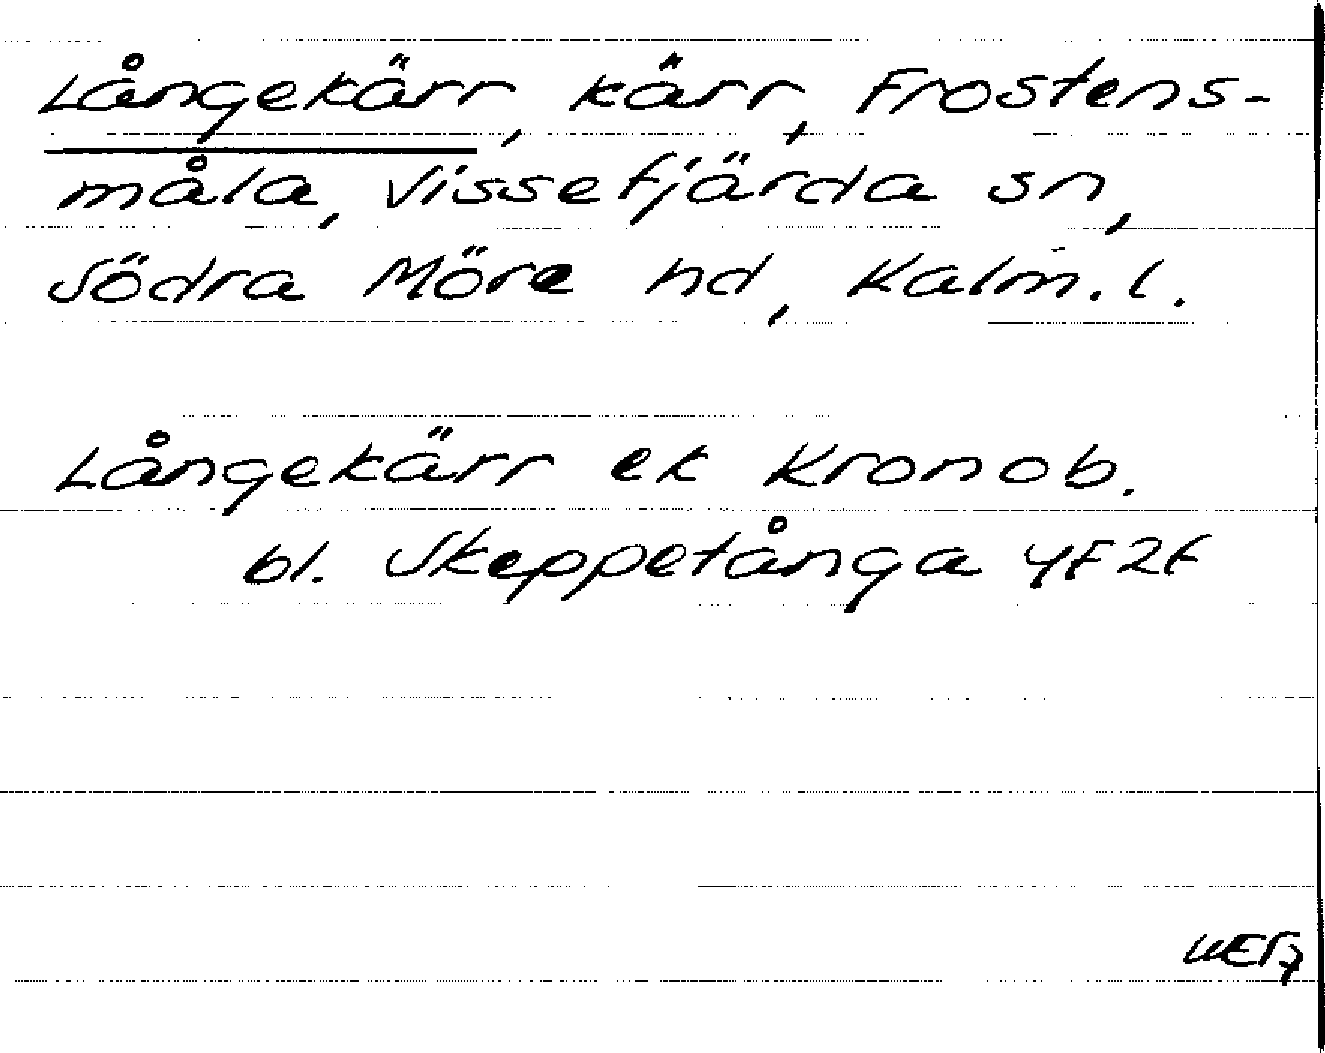 Långekärr, kärr, Frostens-
måla, Vissefjärda sn,
Södra Möre hd, Kalm. l.
Långekärr ek Kronob.
bl. Skeppetånga 4F2f